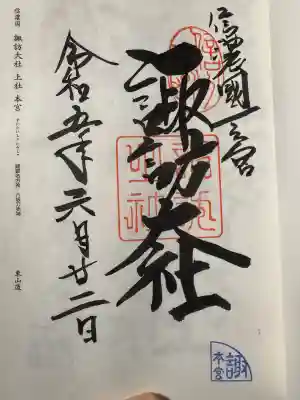 信濃國一之宮
諏訪大社
令和五年六月廿二日
信濃國 諏訪大社 上社 本宮
東山道
諏
本宮